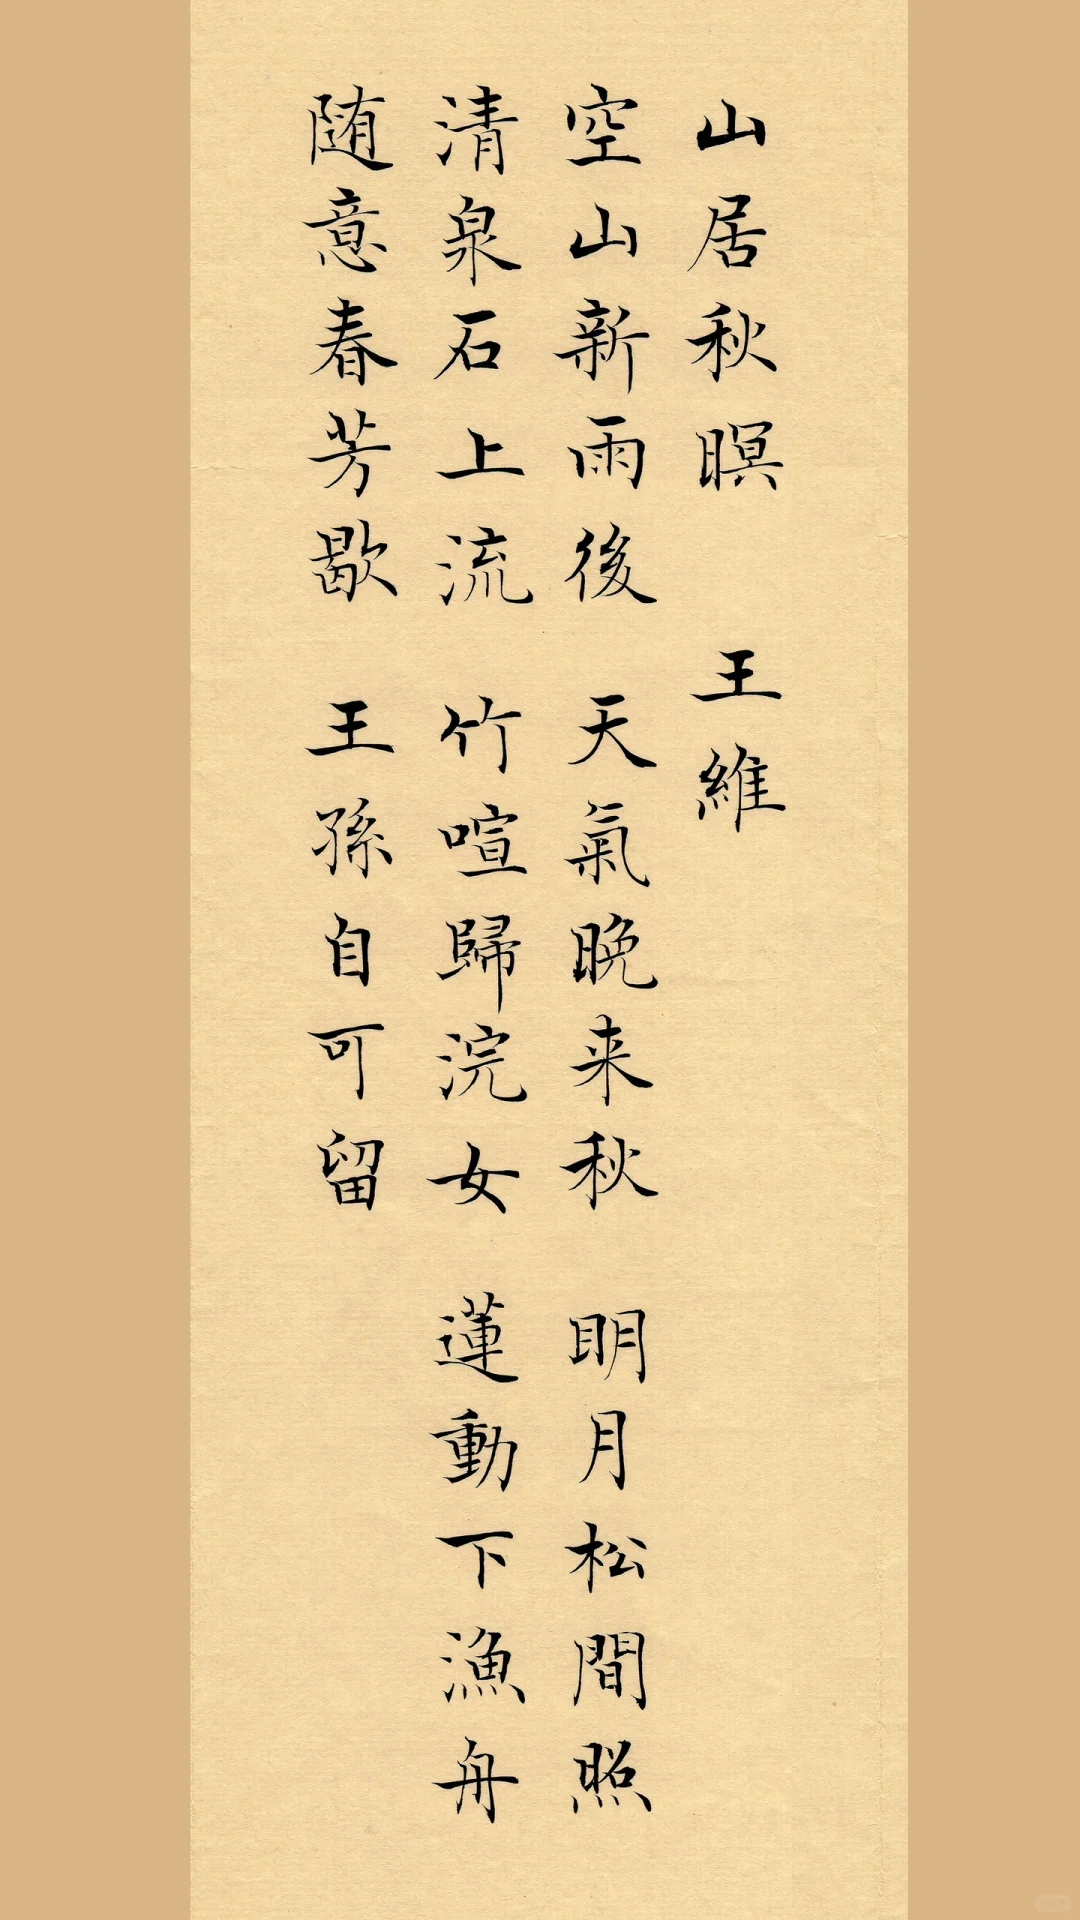 山居秋暝 王維
空山新雨後 天氣晚来秋 明月松間照
清泉石上流 竹喧歸浣女 蓮動下漁舟
随意春芳歇 王孫自可留